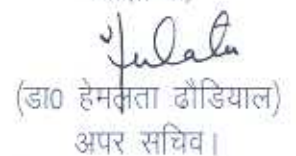 (डा0 हेमलता ढौडियाल)
अपर सचिव।